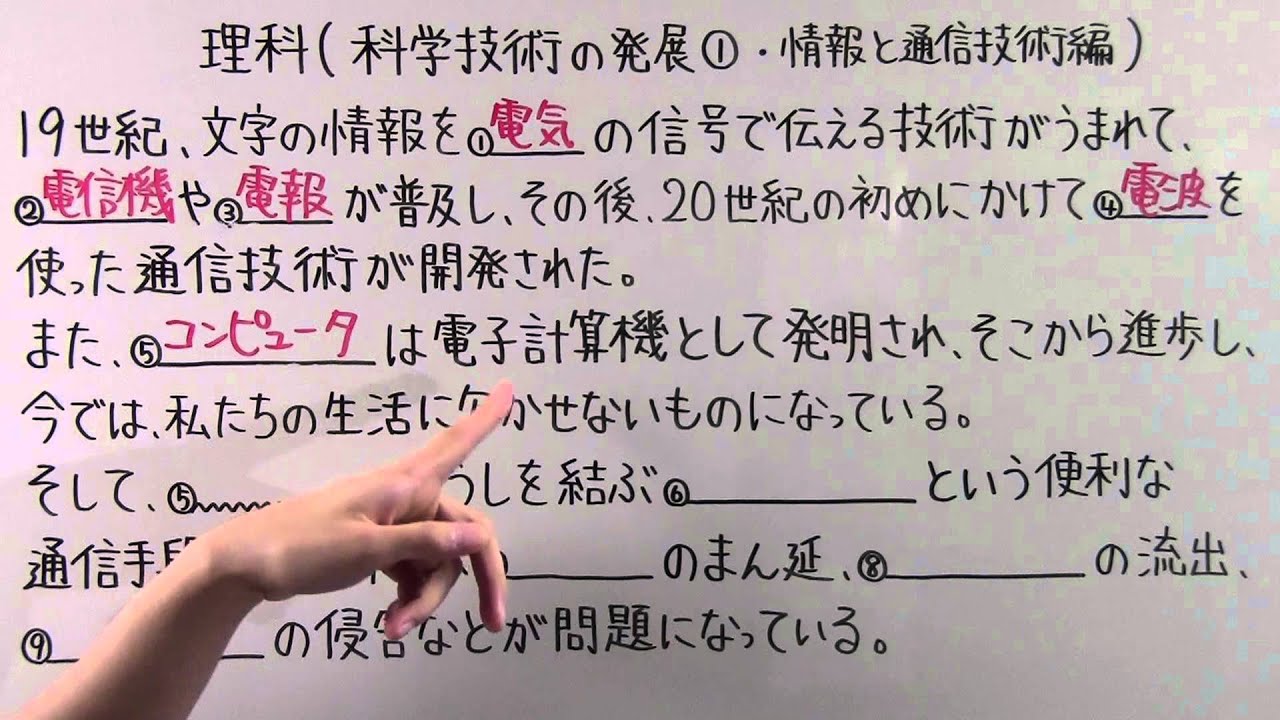 理科(科学技術の発展①・情報と通信技術編)
19世紀、文字の情報を①電気の信号で伝える技術がうまれて、
②電信機や③電報が普及し、その後、20世紀の初めにかけて④電波を
使った通信技術が開発された。
また、⑤コンピュータは電子計算機として発明され、そこから進歩し、
今では、私たちの生活に欠かせないものになっている。
そして、⑤ うしを結ぶ⑥ という便利な
通信手段 のまん延、⑧ の流出、
⑨ の侵害などが問題になっている。